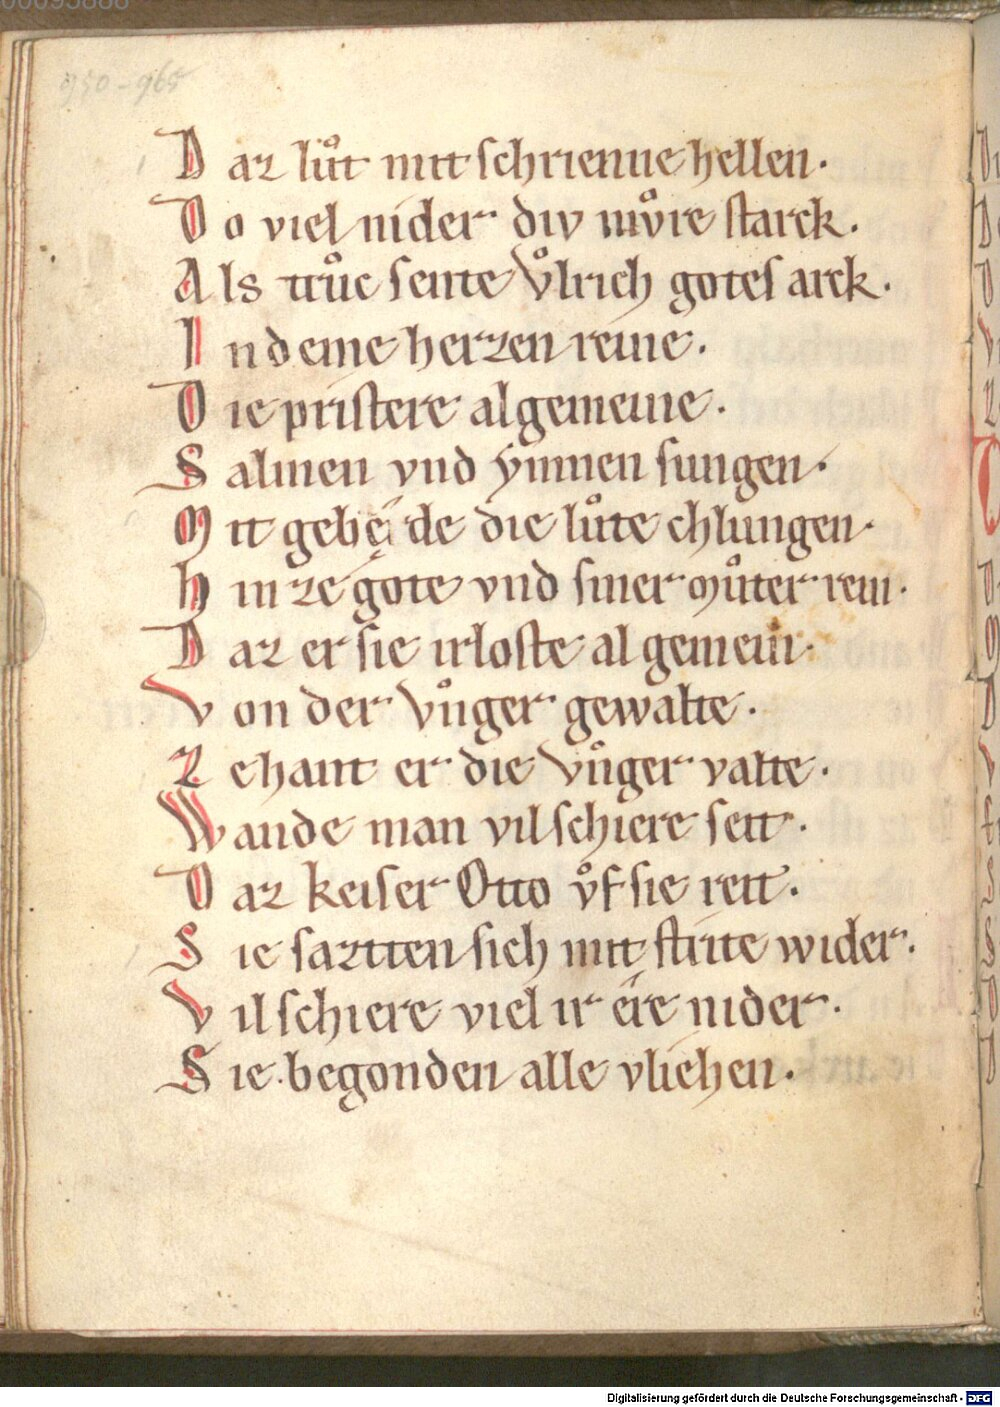 950-965
Daz luͦt mit schrienne hellen·
Do viel nider div mvͦre starck·
Als truͦc sente Vͦlrich gotes arck·
In deme herzen reine·
Die pristere algemeine·
Salmen vnd ẏmnen sungen·
Mit gebęrde die luͦte chlungen·
Hin ze gote vnd siner muͦter rein·
Daz er sie irloste al gemein·
Von der Vuͦger gewalte·
Zehant er die Vuͦger valte·
Wande man vil schiere seit·
Daz keiser Otto vͦf sie reit·
Sie saztten sich mit strite wider·
Vil schiere viel ir ére nider·
Sie begonden alle vliehen·
Digitalisierung gefördert durch die Deutsche Forschungsgemeinschaft - DFG